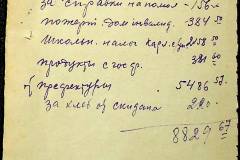 за справки на помол - 156 -
пожерт. Дом инвалид. - 384 50
Школьн. налог Карл. 2158 50
продукты с гос др. 381 60
у Префектуры 5486 57
за хлеб об скидана 220.
8829 67